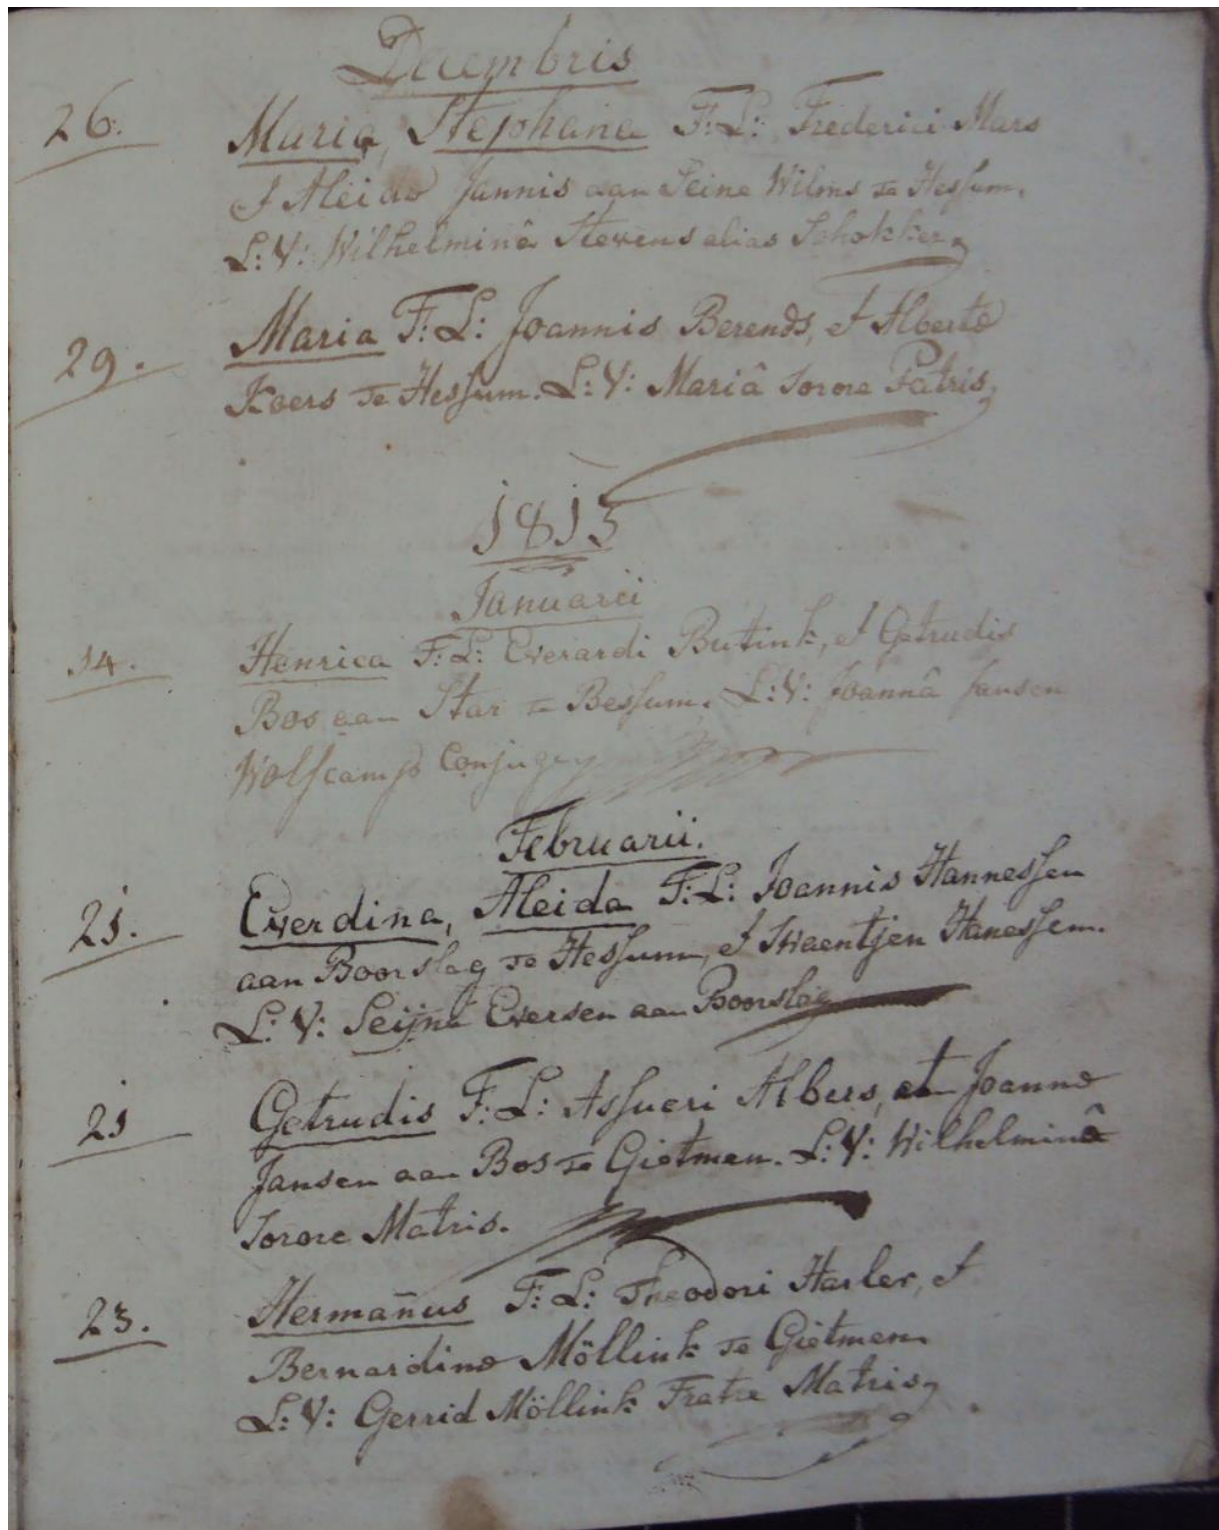 Decembris
26. Maria, Stephana F: L: Frederici Mars
et Aleidæ Jannis aan Seine Wilms te Hessum.
L: V: Wilhelminâ Stevens alias Schokker
29. Maria F: L: Joannis Berends, et Albertæ
Koers te Hessum. L: V: Mariâ Sorore Patris
1815
Januarii
14. Henrica F: L: Everardi Butink, et Getrudis
Bos aan Star te Bessum. L: V: Joannâ Jansen
Wolfcamps Conjuge
Februarii.
21. Everdina, Aleida F: L: Joannis Hannessen
aan Boorslag te Hessum, et Swaentjen Hanessen.
L: V: Seijna Eversen aan Boorslag
21 Getrudis F: L: Assueri Albers, et Joannæ
Jansen aan Bos te Gietmen. L: V: Wilhelminâ
Sorore Matris.
23. Hermañus F: L: Theodori Harler, et
Bernardinæ Möllink te Gietmen
L: V: Gerrid Möllink Fratre Matris